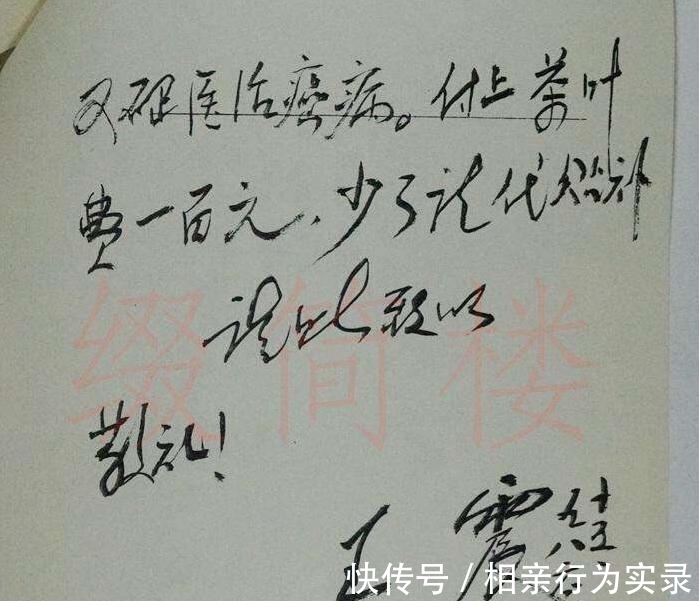 又砠医治癌病。付上茶叶
费一百元,少了请代
谨此致以
敬礼!
王震
缀简楼
快传号/相亲行为实录